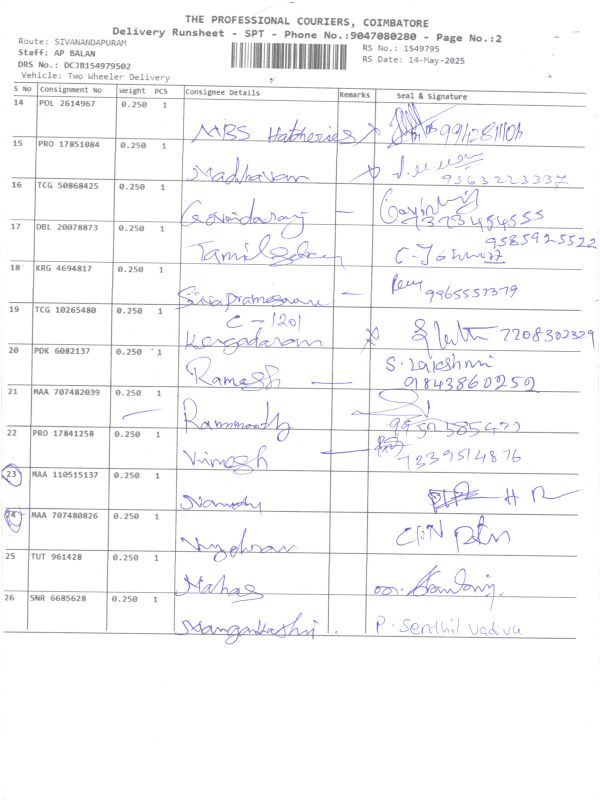 THE PROFESSIONAL COURIERS, COIMBATORE
Delivery Runsheet - SPT - Phone No.:9047080280 - Page No.:2
Route: SIVANANDAPURAM
Staff: AP BALAN
DRS No.: DCJB154979502
Vehicle: Two Wheeler Delivery
RS No.: 1549795
RS Date: 14-May-2025
S No Consignment No Weight PCS Consignee Details Remarks Seal & Signature
14 POL 2614967 0.250 1
MBS Hatcheries 9942811104
15 PRO 17851084 0.250 1
Madhavan 9363223337
16 TCG 50868425 0.250 1
Govindaraj - 7373454555
17 DBL 20078873 0.250 1
9585925522
18 KRG 4694817 0.250 1
- 9965557379
19 TCG 10265480 0.250 1
C-1201
7208302329
20 PDK 6082137 0.250 1
Ramesh - S. Lakshmi
9843860252
21 MAA 707482039 0.250 1
22 PRO 17841258 0.250 1
Vimesh - 7339514876
23 MAA 110515137 0.250 1
24 MAA 707480826 0.250 1
25 TUT 961428 0.250 1
26 SNR 6685628 0.250 1
P. Senthil vadivu